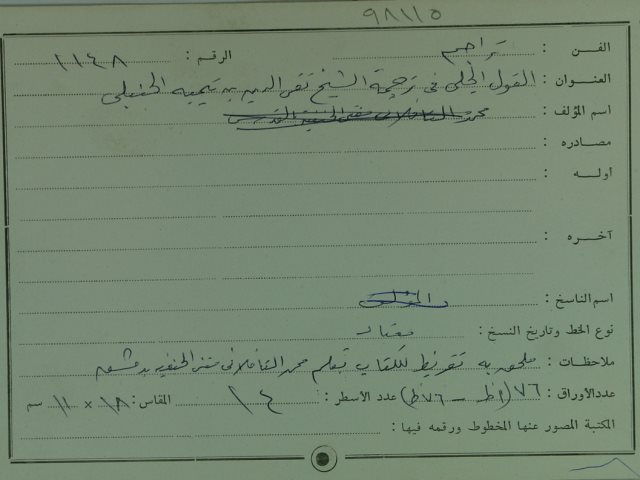 ٩٨١١٥
الفن : تراجم الرقم : ١١٤٨
العنوان : القول الجلي في ترجمة الشيخ تقي الدين بن تيميه الحنبلي
اسم المؤلف : محمد التافلاتى مفتى الحنفية القدس
مصادره :
اولـه :
آخره :
اسم الناسخ : المؤلف
نوع الخط وتاريخ النسخ : معتاد
ملاحظات : ملحق به تقريظ للكتاب بقلم محمد التافلاتى مفتى الحنفيه بدمشق
عدد الأوراق : ٧٦ (١ظ - ٧٦ظ) عدد الأسطر : ١٤ المقاس : ١٨ × ١١ سم
المكتبة المصور عنها المخطوط ورقمه فيها :